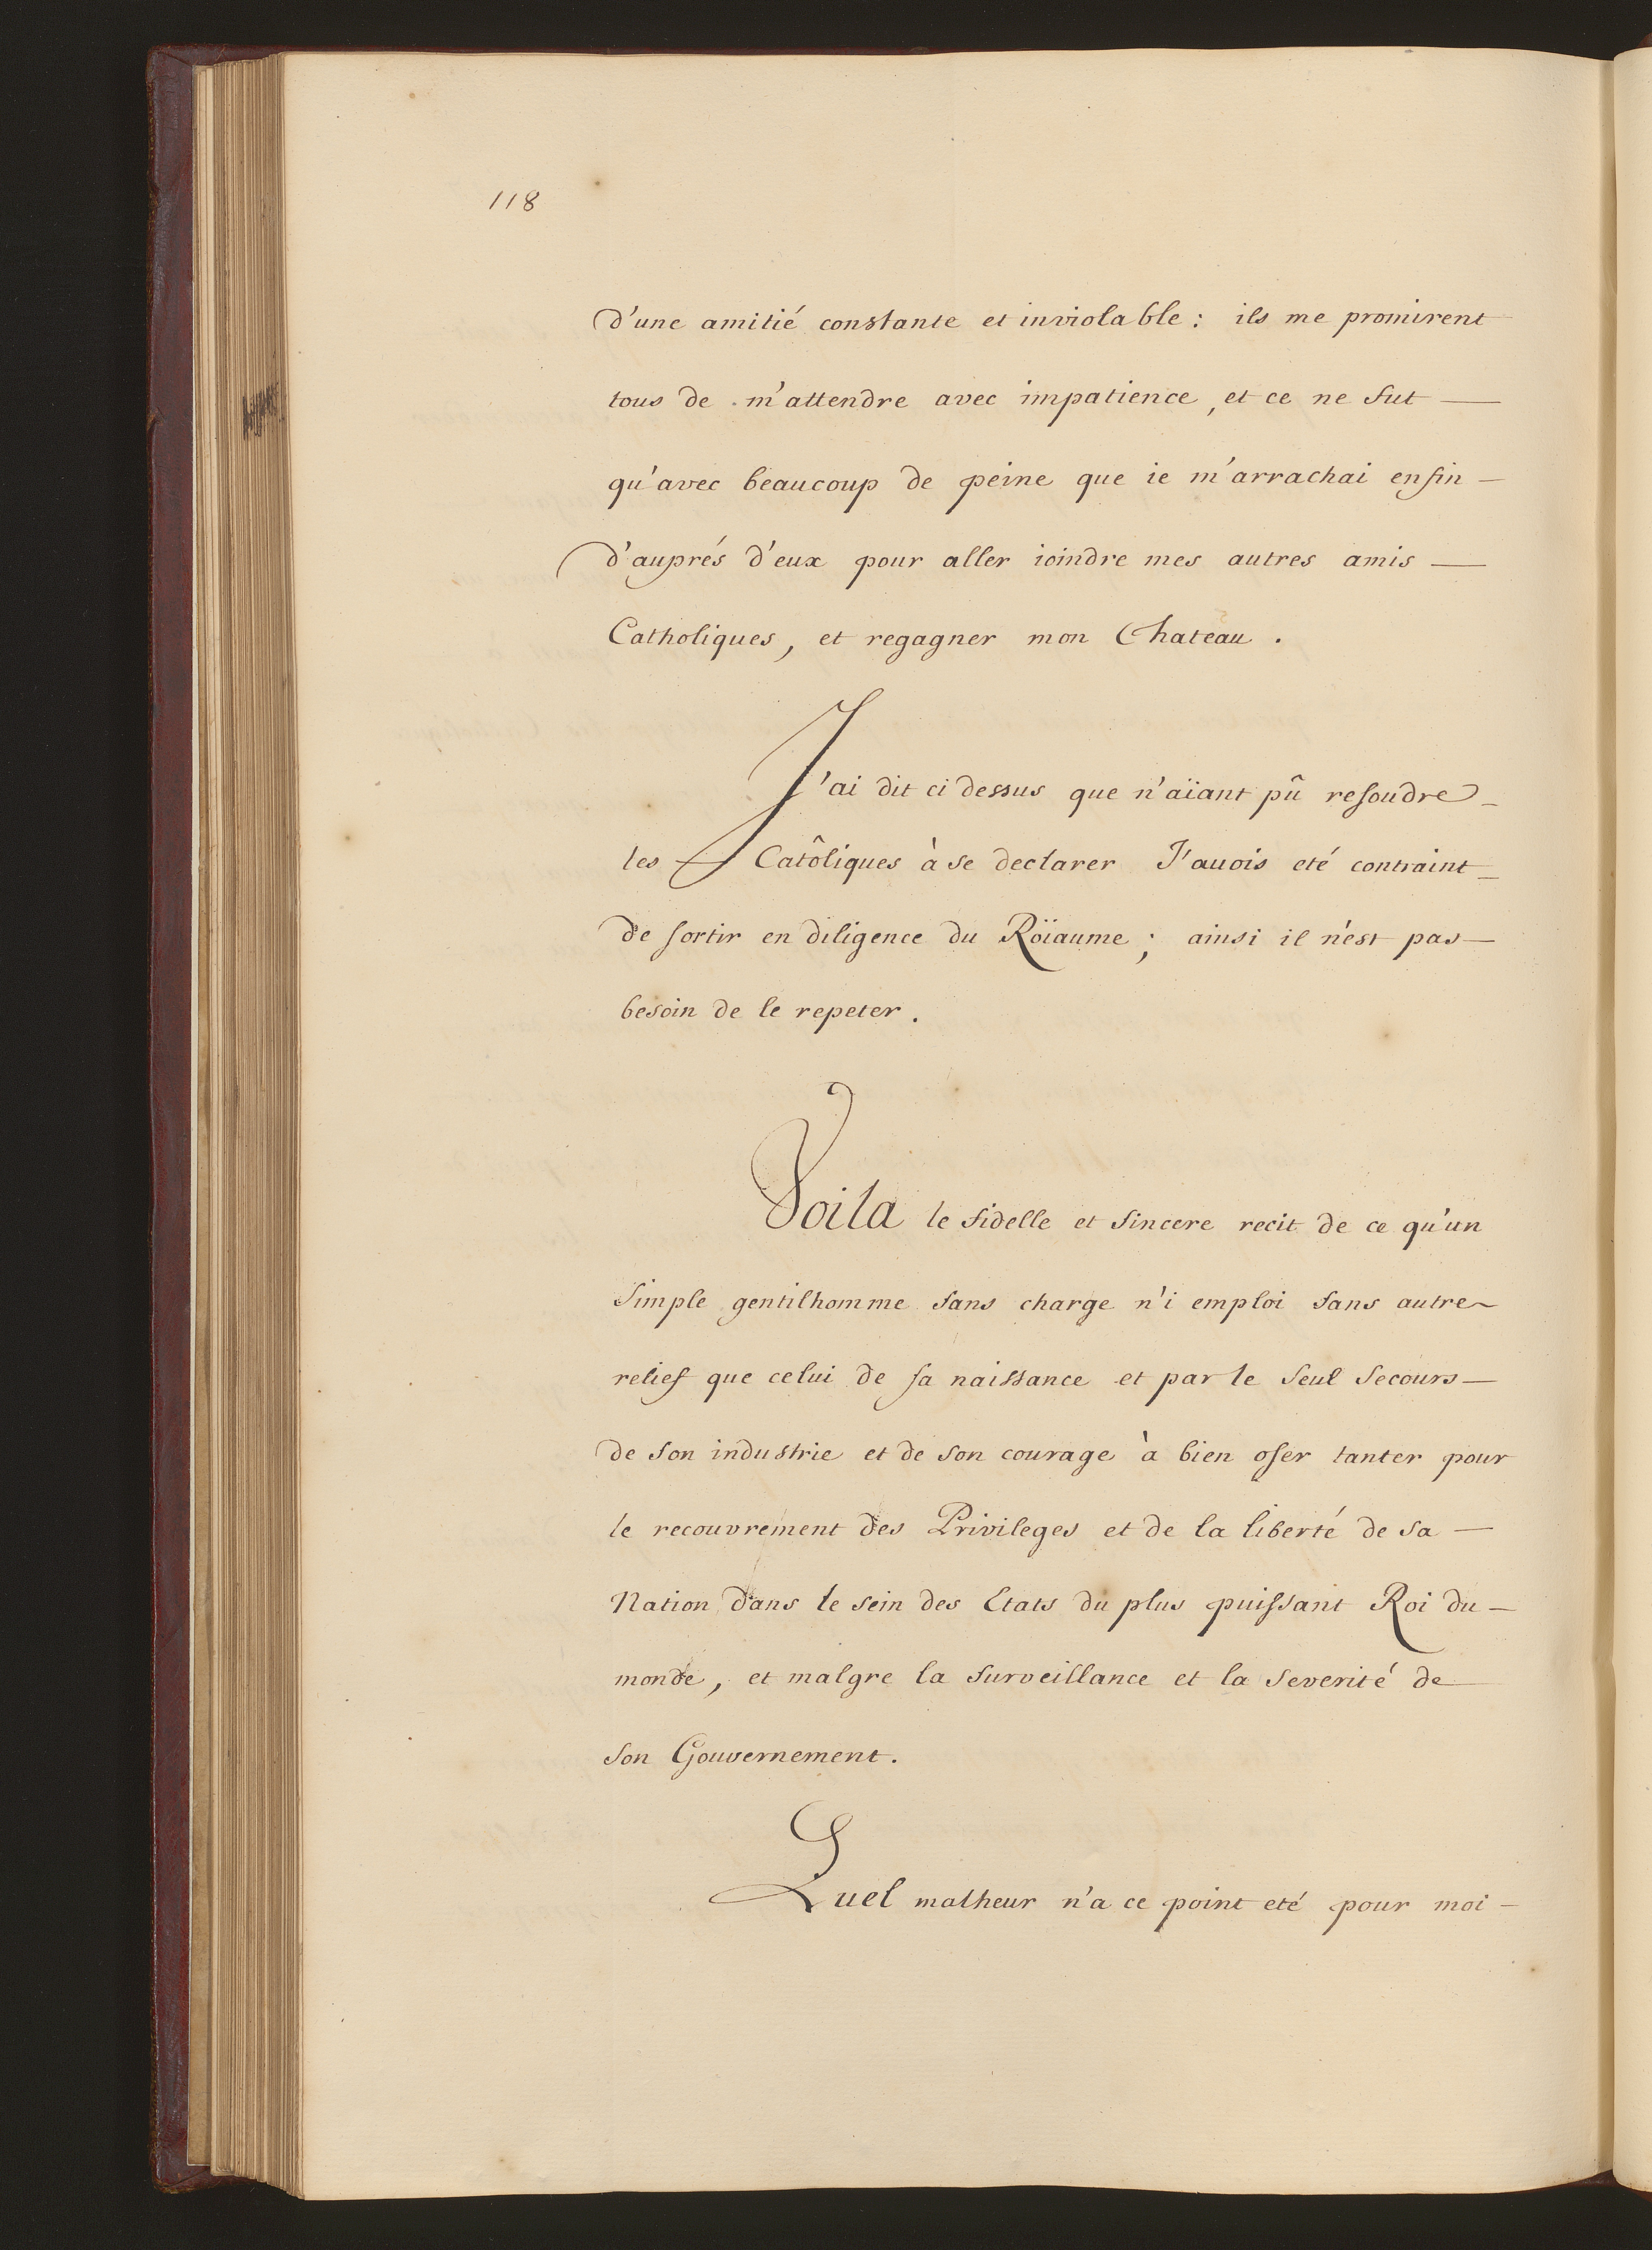 118
d'une amitié constante et inviolable : ils me promirent
tous de m'attendre avec impatience, et ce ne fut —
qu'avec beaucoup de peine que ie m'arrachai enfin —
d'auprés d'eux pour aller ioindre mes autres amis —
Catholiques, et regagner mon Chateau.
J'ai dit ci dessus que n'aïant pû resoudre —
les Catôliques à se declarer J'auois eté contraint —
de sortir en diligence du Roïaume ; ainsi il n'est pas —
besoin de le repeter.
Voila le fidelle et sincere recit de ce qu'un
simple gentilhomme sans charge n'i emploi sans autre
relief que celui de sa naissance et par le seul secours —
de son industrie et de son courage à bien oser tanter pour
le recouvrement des Privileges et de la liberté de sa —
Nation dans le sein des Etats du plus puissant Roi du —
monde, et malgre la surveillance et la severité de
son Gouvernement.
Quel malheur n'a ce point eté pour moi —